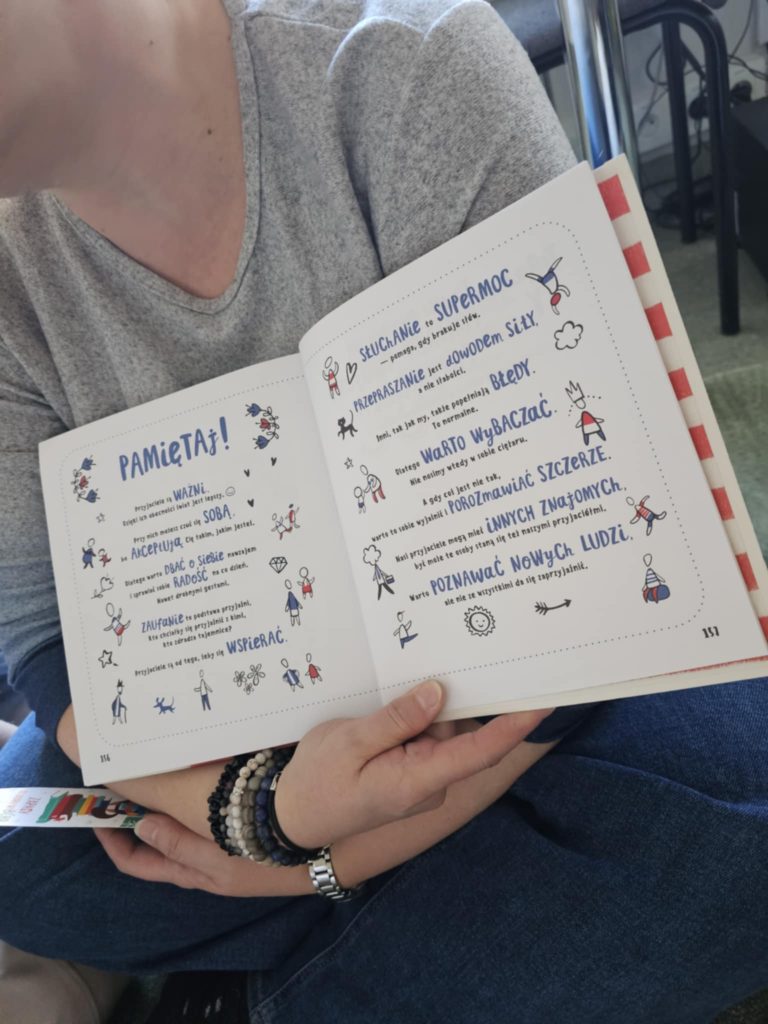 PAMIĘTAJ!
Przyjaciele są WAŻNI.
Dzięki ich obecności świat jest lepszy.
Przy nich możesz czuć się SOBĄ,
bo AKCEPTUJĄ Cię takim, jakim jesteś.
Dlatego warto DBAĆ O SIEBIE nawzajem
i sprawiać sobie RADOŚĆ na co dzień,
nawet drobnymi gestami.
ZAUFANIE to podstawa przyjaźni.
Kto chciałby się przyjaźnić z kimś,
kto zdradza tajemnice?
Przyjaciele są od tego, żeby się WSPIERAĆ.
156
SŁUCHANIE to SUPERMOC
— pomaga, gdy brakuje słów.
PRZEPRASZANIE jest DOWODEM SIŁY,
a nie słabości.
Inni, tak jak my, także popełniają BŁĘDY.
To normalne.
Dlatego WARTO WYBACZAĆ.
Nie nosimy wtedy w sobie ciężaru.
A gdy coś jest nie tak,
warto to sobie wyjaśnić i POROZMAWIAĆ SZCZERZE.
Nasi przyjaciele mogą mieć INNYCH ZNAJOMYCH,
być może te osoby staną się też naszymi przyjaciółmi.
Warto POZNAWAĆ NOWYCH LUDZI,
ale nie ze wszystkimi da się zaprzyjaźnić.
157